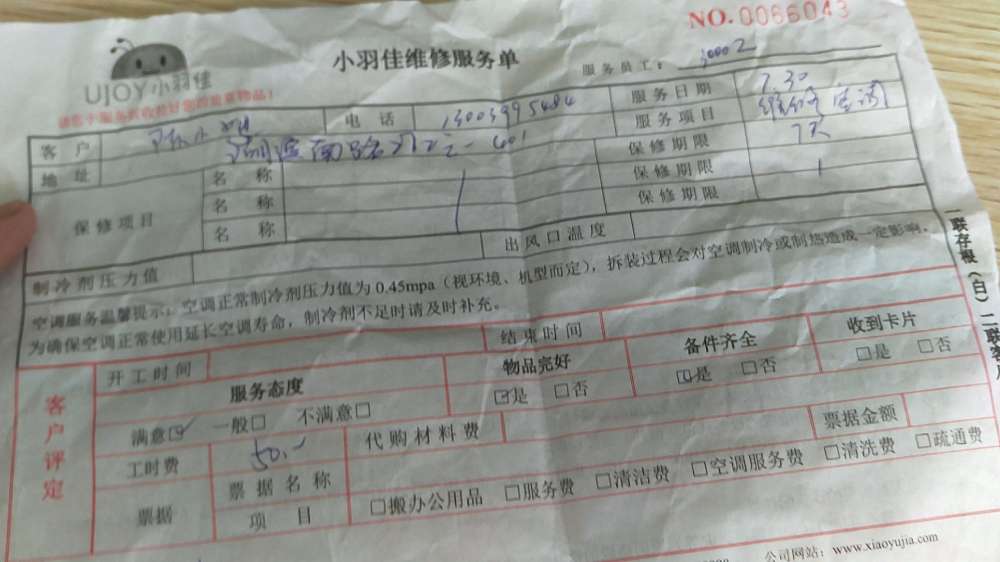 NO.0066043
UJOY小羽佳
小羽佳维修服务单
服务员工: 30002
请您于服务前收拾好您的贵重物品!
客户 电话 服务日期 7.30
地址 服务项目 维修空调
保修项目 名称 保修期限 7天
名称 保修期限
名称 保修期限
制冷剂压力值 出风口温度
空调服务温馨提示:空调正常制冷剂压力值为0.45mpa(视环境、机型而定),拆装过程会对空调制冷或制热造成一定影响。
为确保空调正常使用延长空调寿命,制冷剂不足时请及时补充。
一联存根(白) 二联客
客户评定
开工时间 结束时间
服务态度 物品完好 备件齐全 收到卡片
满意☑ 一般□ 不满意□ ☑是 □否 ☑是 □否 □是 □否
工时费 50.- 代购材料费 票据金额
票据 票据名称
项目 □搬办公用品 □服务费 □清洁费 □空调服务费 □清洗费 □疏通费
公司网站:www.xiaoyujia.com